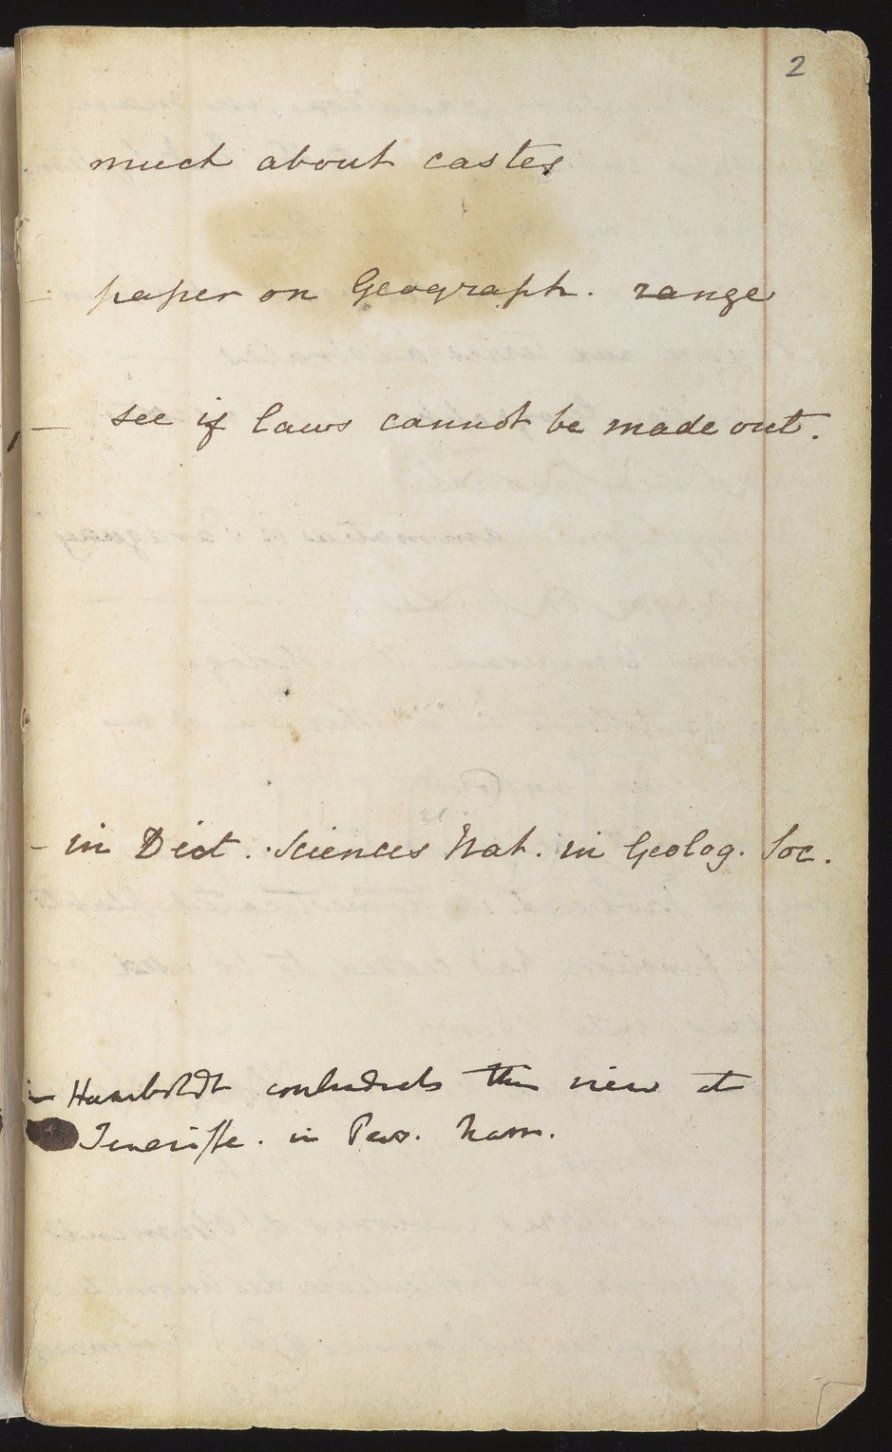 2
much about castes
- paper on Geograph. range
- see if laws cannot be made out.
- in Dict. Sciences Nat. in Geolog. Soc.
- Humboldt contradicts this view at
Teneriffe. in Pers. Narr.